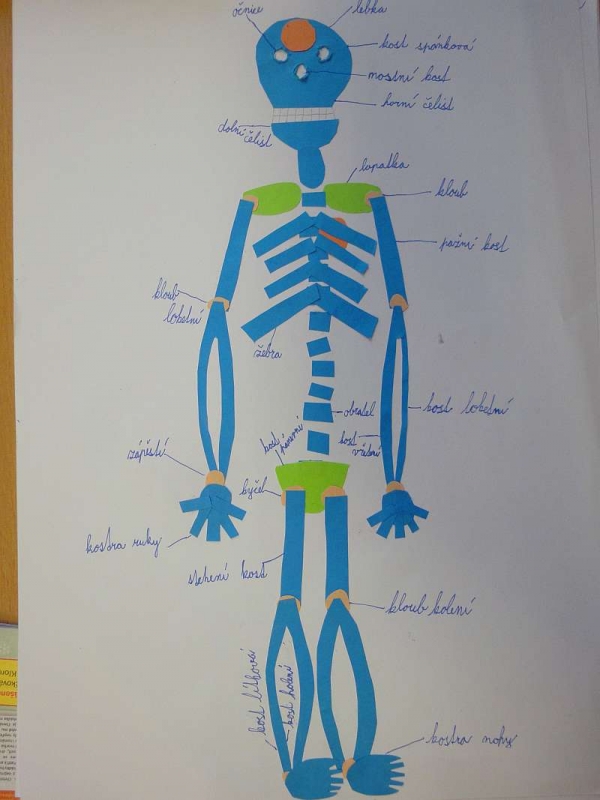 očnice
lebka
kost spánková
mostní kost
horní čelist
dolní
čelist
lopatka
kloub
pažní kost
kloub
loketní
žebra
obratel
kost loketní
kost
vřetení
kost
pánevní
zápěstí
kyčel
kostra ruky
stehení kost
kloub kolení
kost lítková
kost holení
kostra nohy